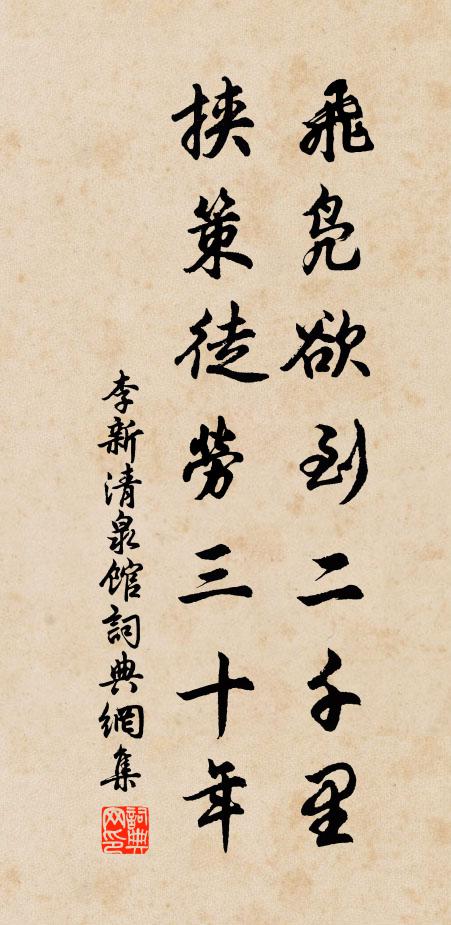 飛凫欲到二千里
挾策徒勞三十年
李新清泉館詞典網集
詞典
网印